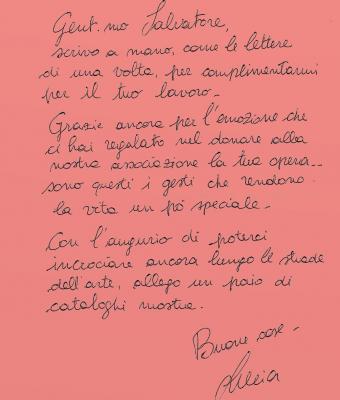 Gent.mo Salvatore,
scrivo a mano, come le lettere
di una volta, per complimentarmi
per il tuo lavoro_
Grazie ancora per l'emozione che
ci hai regalato nel donare alla
nostra associazione la tua opera__
sono questi i gesti che rendono
la vita un pó speciale_
Con l'augurio di poterci
incrociare ancora lungo le strade
dell'arte, allego un paio di
cataloghi mostra.
Buone cose_